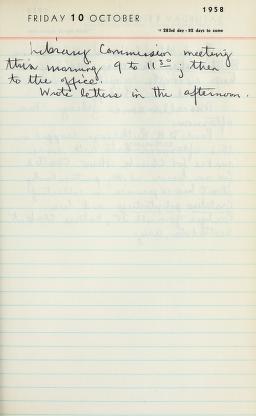 1958
FRIDAY 10 OCTOBER
283rd day - 82 days to come
Library Commission meeting
this morning, 9 to 11 30 ; then
to the office.
Wrote letters in the afternoon.